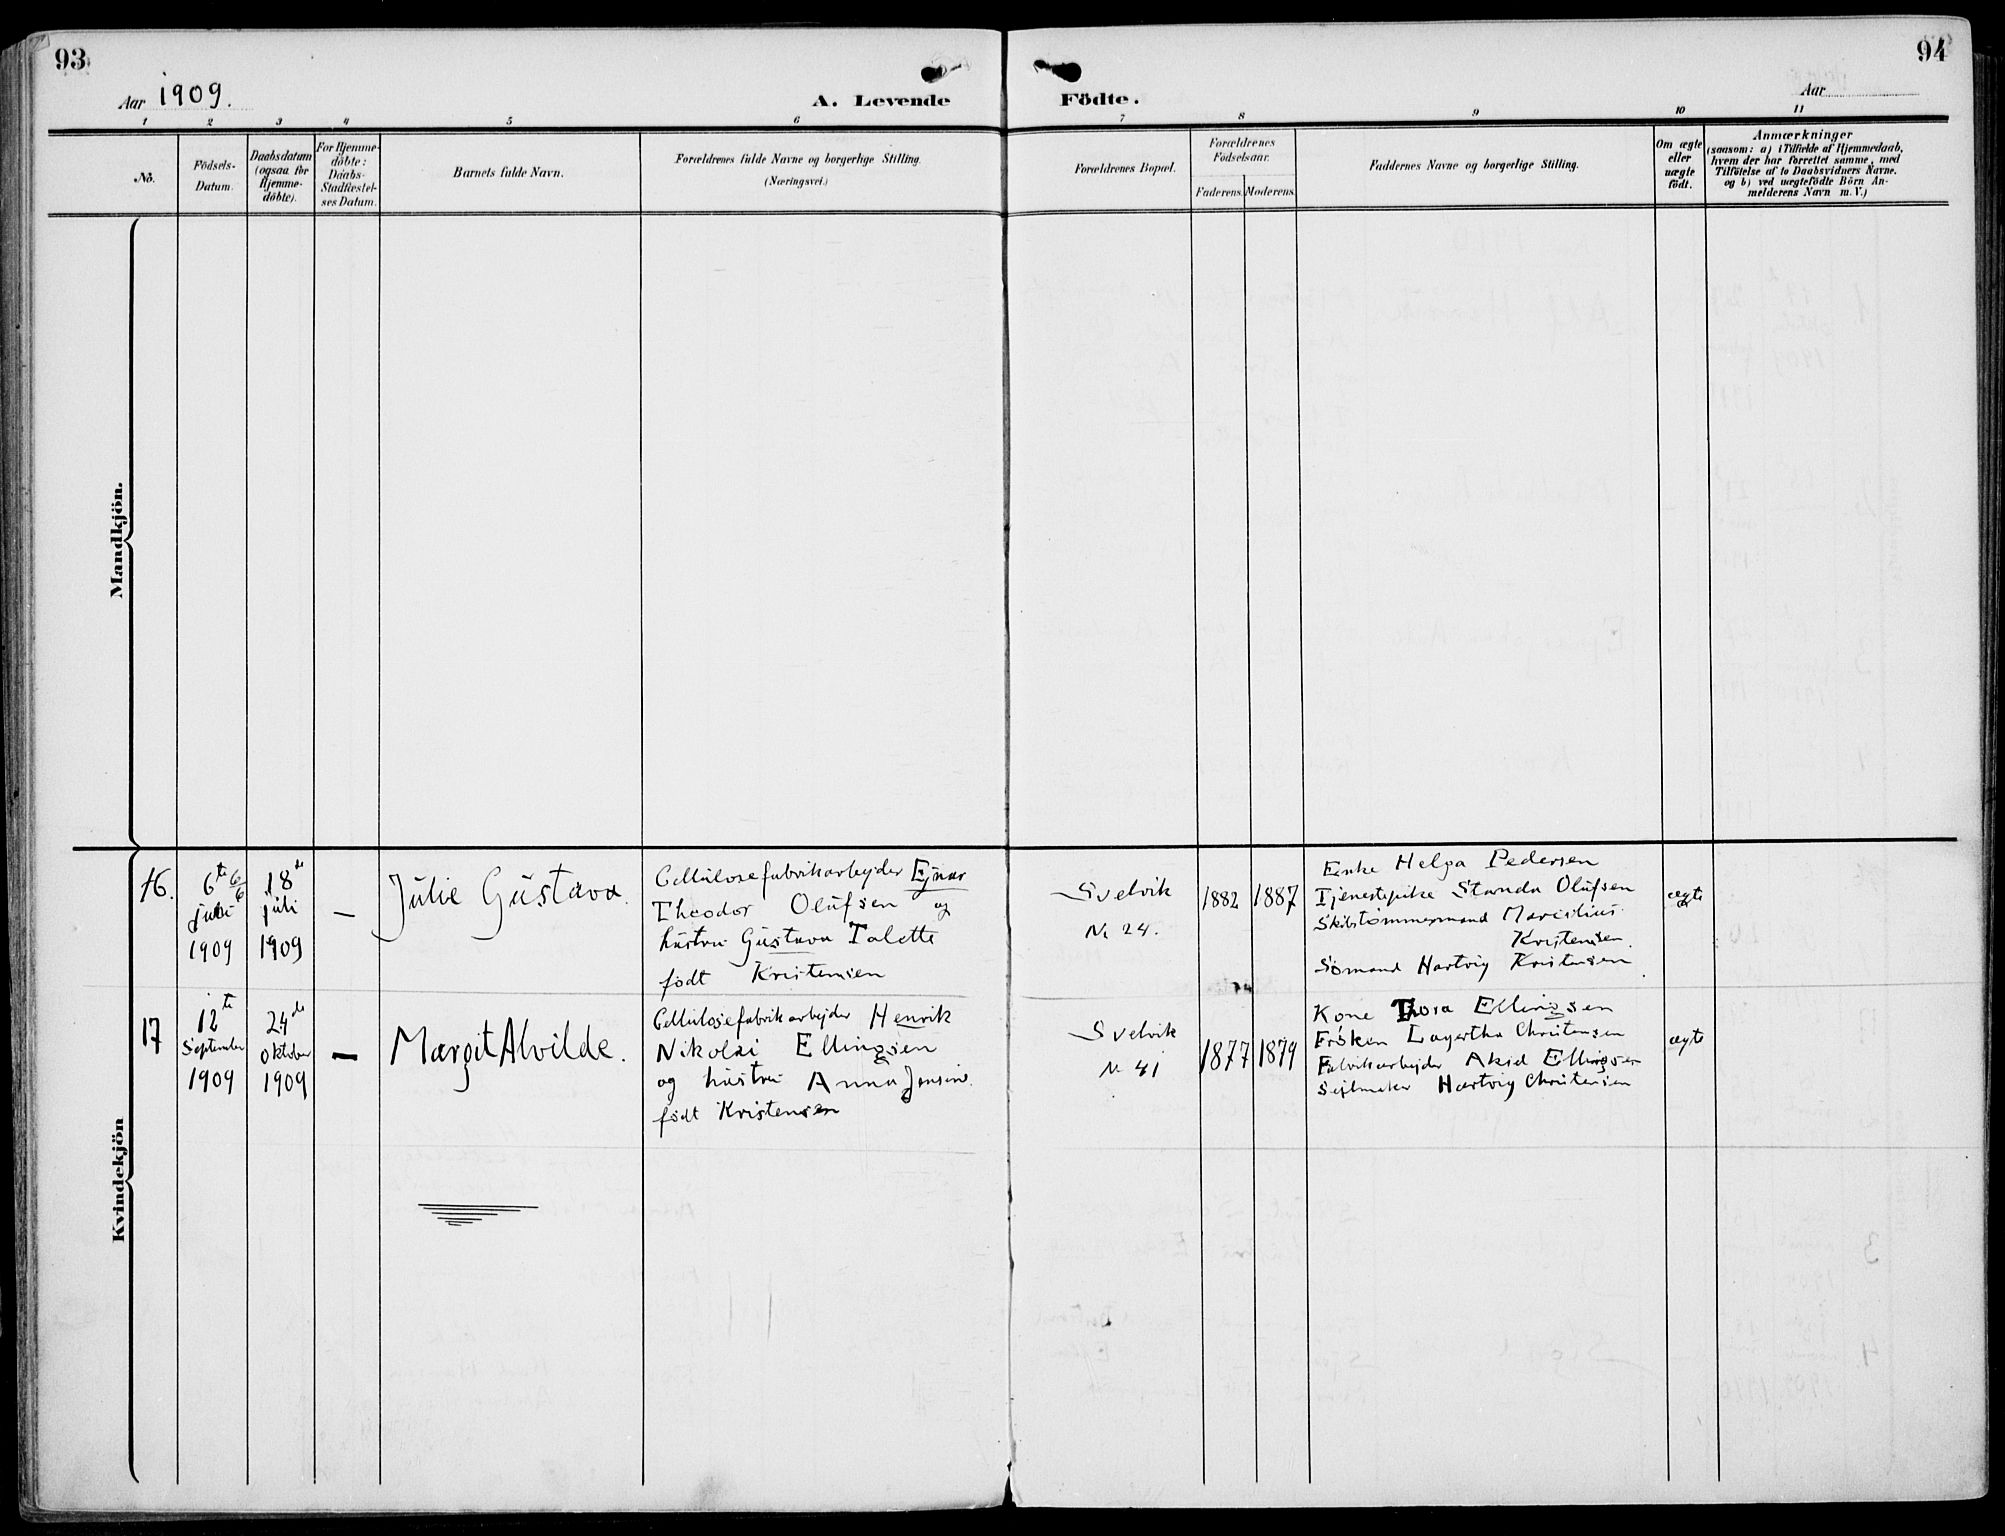 93
Aar 1909.
A. Levende Födte.
94
Aar
1 2 3 4 5 6 7 8 9 10 11
No.
Födsels-
Datum.
Daabsdatum
(ogsaa for
Hjemme-
døbte).
For Hjemme-
døbte:
Daabs-
Stadfæstel-
ses Datum.
Barnets fulde Navn.
Forældrenes fulde Navne og borgerlige Stilling.
(Næringsvei.)
Forældrenes Bopæl.
Forældrenes
Födselsaar.
Faderens. Moderens.
Faddernes Navne og borgerlige Stilling.
Om ægte
eller
uægte
født.
Anmærkninger
(saasom: a) i Tilfælde af Hjemmedaab,
hvem der har forrettet samme, med
Tilföielse af to Daabsvidners Navne.
og b) ved uægtefödte Börn An-
melderens Navn m. V.)
Mandkjön.
Kvindekjön
16.
6te 6/6
juli
1909
18de
juli
1909
—
Julie Gustava.
Cellulosefabrikarbejder Ejnar
Theodor Olufsen og
hustru Gustava Talette
født Kristensen
Svelvik
No 24.
1882
1887
Enke Helga Pedersen
Tjenestepike Olufsen
Skibstømmermand
Kristensen.
Sømand Hartvig Kristensen
ægte
17
12te
September
1909
24de
Oktober
1909
—
Margit Alvilde.
Cellulosefabrikarbejder Henrik
Nikolai Ellingsen
og hustru Anna Jensine
født Kristensen
Svelvik
No 41
1877
1879
Kone Thora Ellingsen
Frøken Lagertha Christensen
Fabrikarbejder Ellingsen
Sejlmaker Hartvig Christensen
ægte